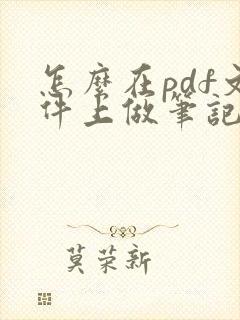 怎麼在pdf文
件上做筆記
莫荣新